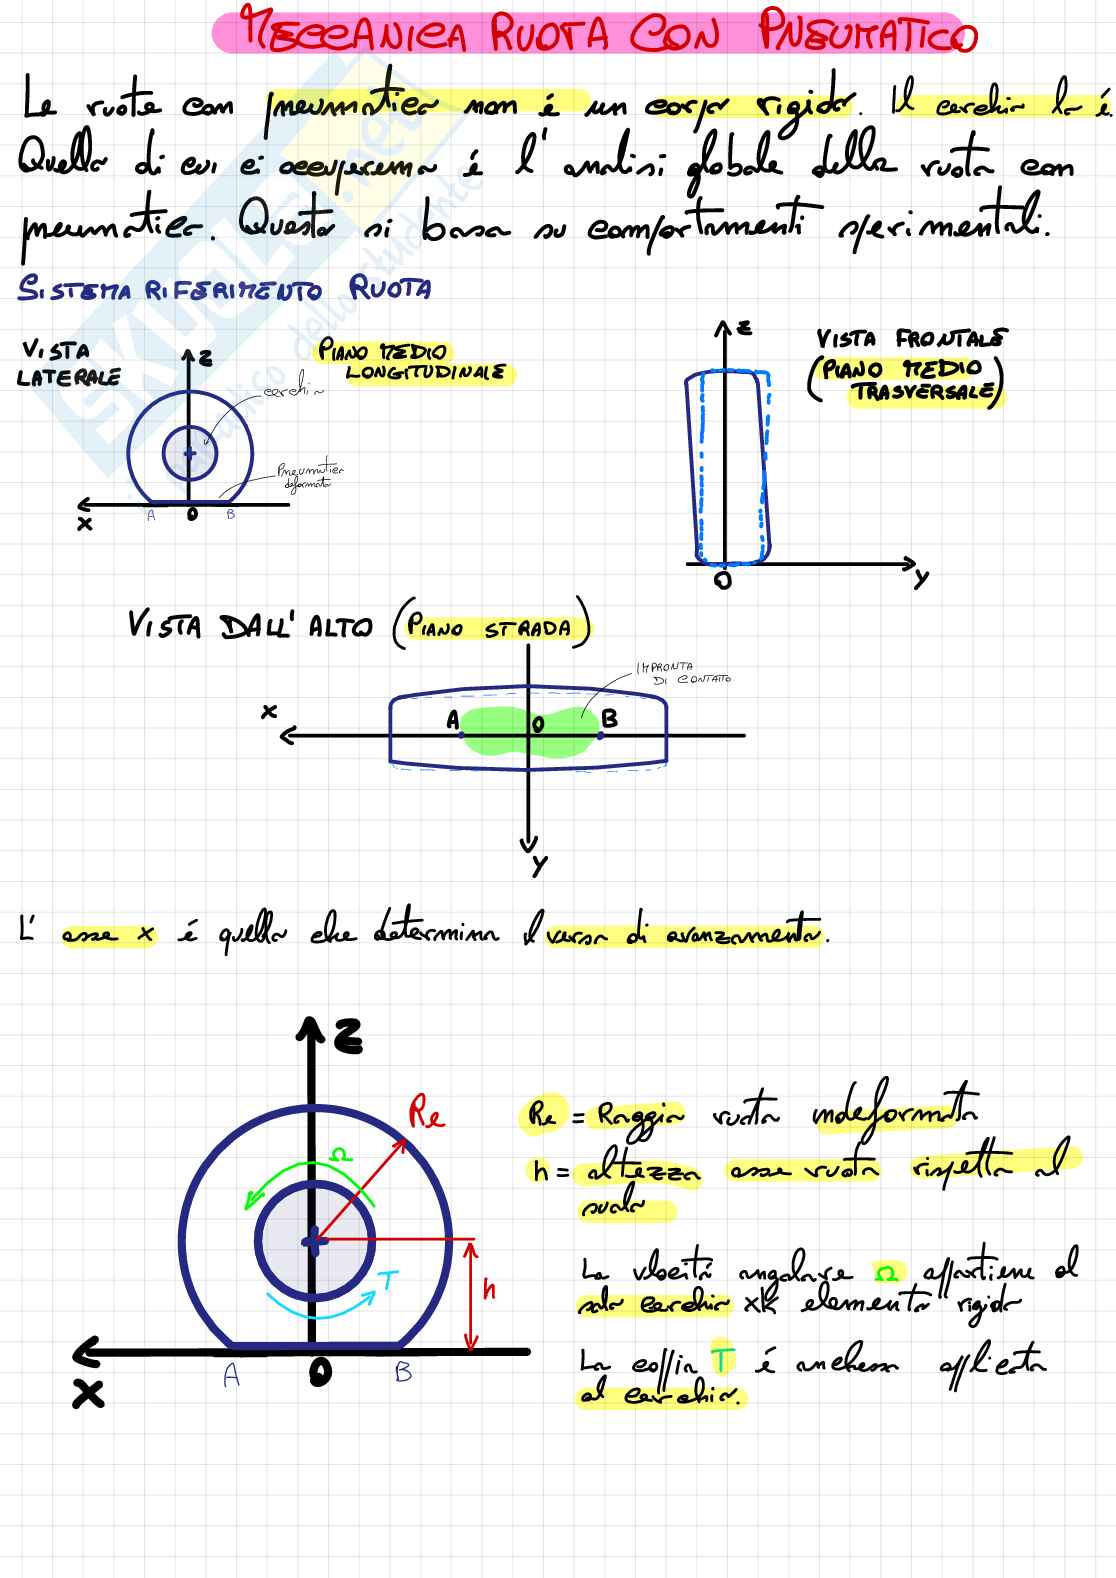 MECCANICA RUOTA CON PNEUMATICO
Le ruote con pneumatico non é un corpo rigido. Il cerchio lo é.
Quello di cui ci occuperemo é l'analisi globale della ruota con
pneumatico. Questo si basa su comportamenti sperimentali.
SISTEMA RIFERIMENTO RUOTA
VISTA
LATERALE
z
PIANO MEDIO
LONGITUDINALE
cerchio
Pneumatico
deformato
x
A
O
B
z
VISTA FRONTALE
(PIANO MEDIO
TRASVERSALE)
O
y
VISTA DALL'ALTO (PIANO STRADA)
IMPRONTA
DI CONTATO
x
A
O
B
y
L' asse x é quello che determina il verso di avanzamento.
z
Re
Ω
T
h
x
A
O
B
Re = Raggio ruota indeformata
h = altezza asse ruota rispetto al
suolo
La vlocitá angolare Ω appartiene al
solo cerchio xk elemento rigido
La coppia T é anchessa applicata
al cerchio.
SKUOLA.net
dello studente